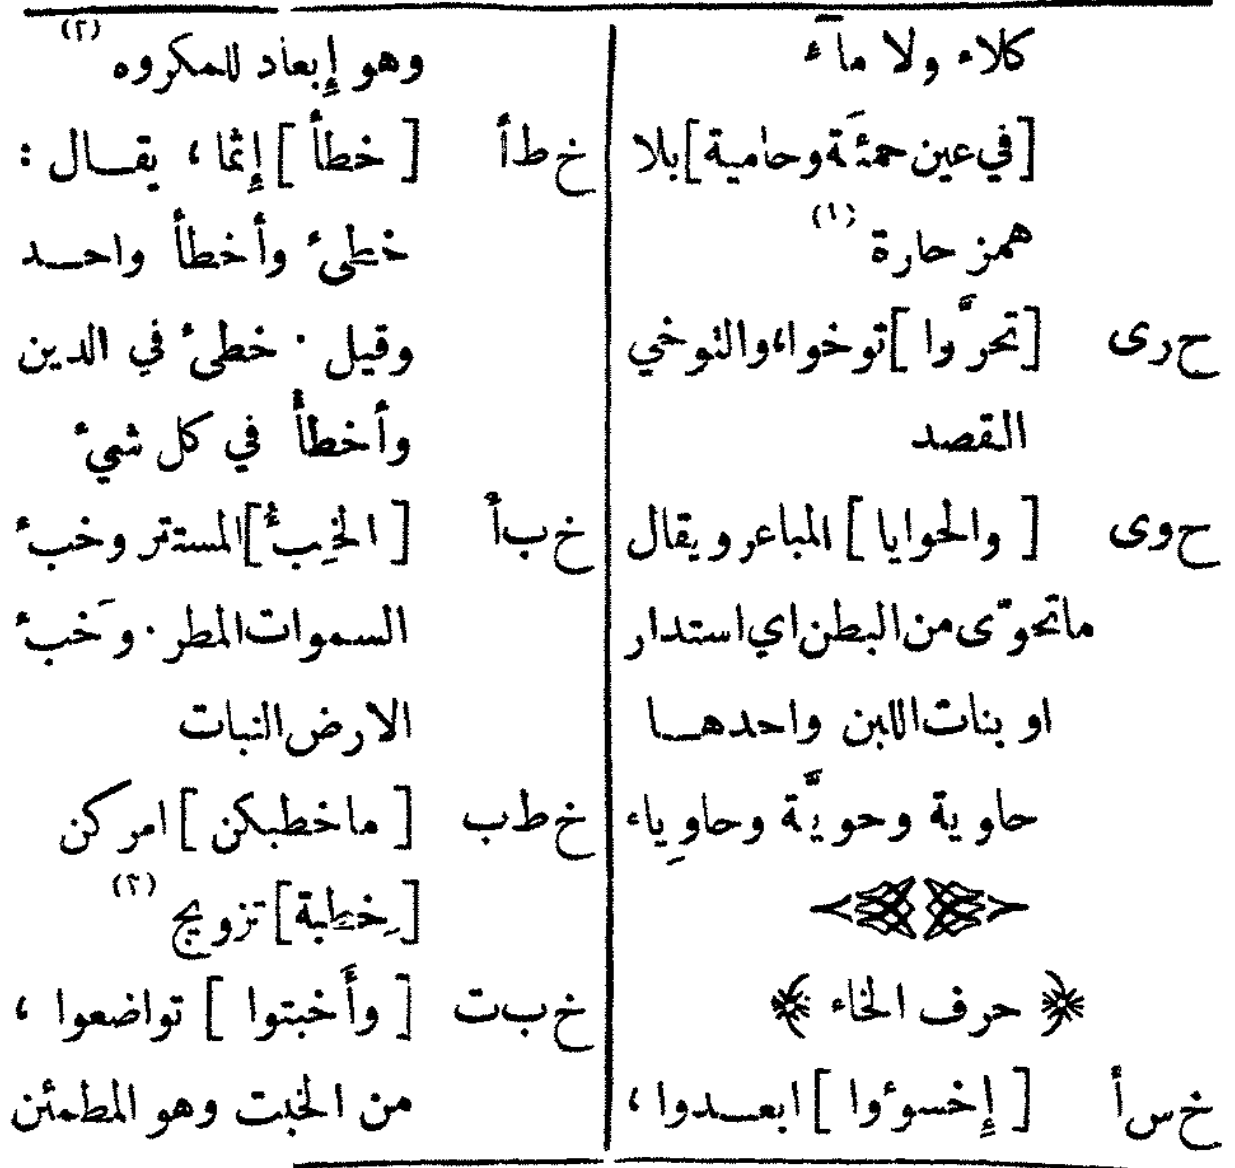 كلاء ولا مآء
[في عين حمئَة وحامية] بلا
همز حارة (١)
ح رى [تحرَّوا] توخوا، والتوخي
القصد
ح وى [والحوايا] المباعر ويقال
ما تحوّى من البطن اي استدار
او بنات اللبن واحدهـا
حاوية وحويَّة وحاوِياء
﴿ حرف الخاء ﴾
خ س أ [إِخسوءُوا] ابعـدوا،
وهو إِبعاد للمكروه (٢)
خ ط أ [خطأ] إِثما، يقـال:
خطِئ وأخطأ واحـد
وقيل. خطئ في الدين
وأخطأ في كل شيء
خ ب أ [الخِبْأُ] المستتر وخبء
السموات المطر. وخَبء
الارض النبات
خ ط ب [ما خطبكن] امركن
[خِطبة] تزويج (٣)
خ ب ت [وأَخبتوا] تواضعوا،
من الخبت وهو المطمئن